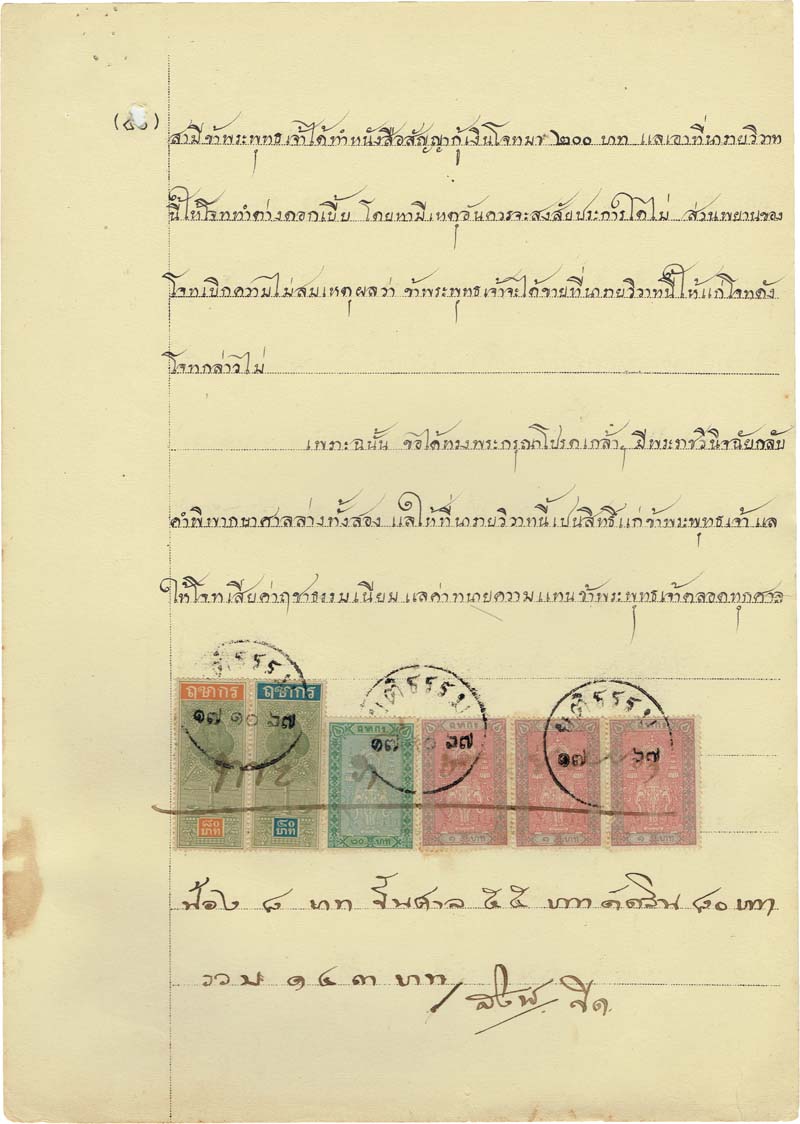 สามีข้าพระพุทธเจ้าได้ทำหนังสือสัญญากู้เงินโจทมา ๒๐๐ บาท แลเอาที่นารายวิวาท
นี้ให้โจททำต่างดอกเบี้ย โดยหามีเหตุอันควรจะสงสัยประการใดไม่ ส่วนพยานของ
โจทเบิกความไม่สมเหตุผลว่า ข้าพระพุทธเจ้าจะได้ขายที่นารายวิวาทนี้ให้แก่โจทดัง
โจทกล่าวไม่
เพราะฉนั้น ขอได้ทรงพระกรุณาโปรดเกล้าฯ มีพระราชวินิจฉัยกลับ
คำพิพากษาศาลล่างทั้งสอง แลให้ที่นารายวิวาทนี้เปนสิทธิ์แก่ข้าพระพุทธเจ้า แล
ให้โจทเสียค่าฤชาธรรมเนียม แลค่าทนายความแทนข้าพระพุทธเจ้าตลอดทุกศาล
ยุติธรรม ยุติธรรม ยุติธรรม
ฤชากร ฤชากร ฤชากร ฤชากร ฤชากร ฤชากร
๑๗ ๑๐ ๖๗ ๑๗ ๑๐ ๖๗ ๑๗ ๖๗
๘๐ บาท ๕๐ บาท ๒๐ บาท ๑ บาท ๑ บาท ๑ บาท
ฟ้อง ๘ บาท ขึ้นศาล ๕๕ บาท ตัดสิน ๘๐ บาท
รวม ๑๔๓ บาท